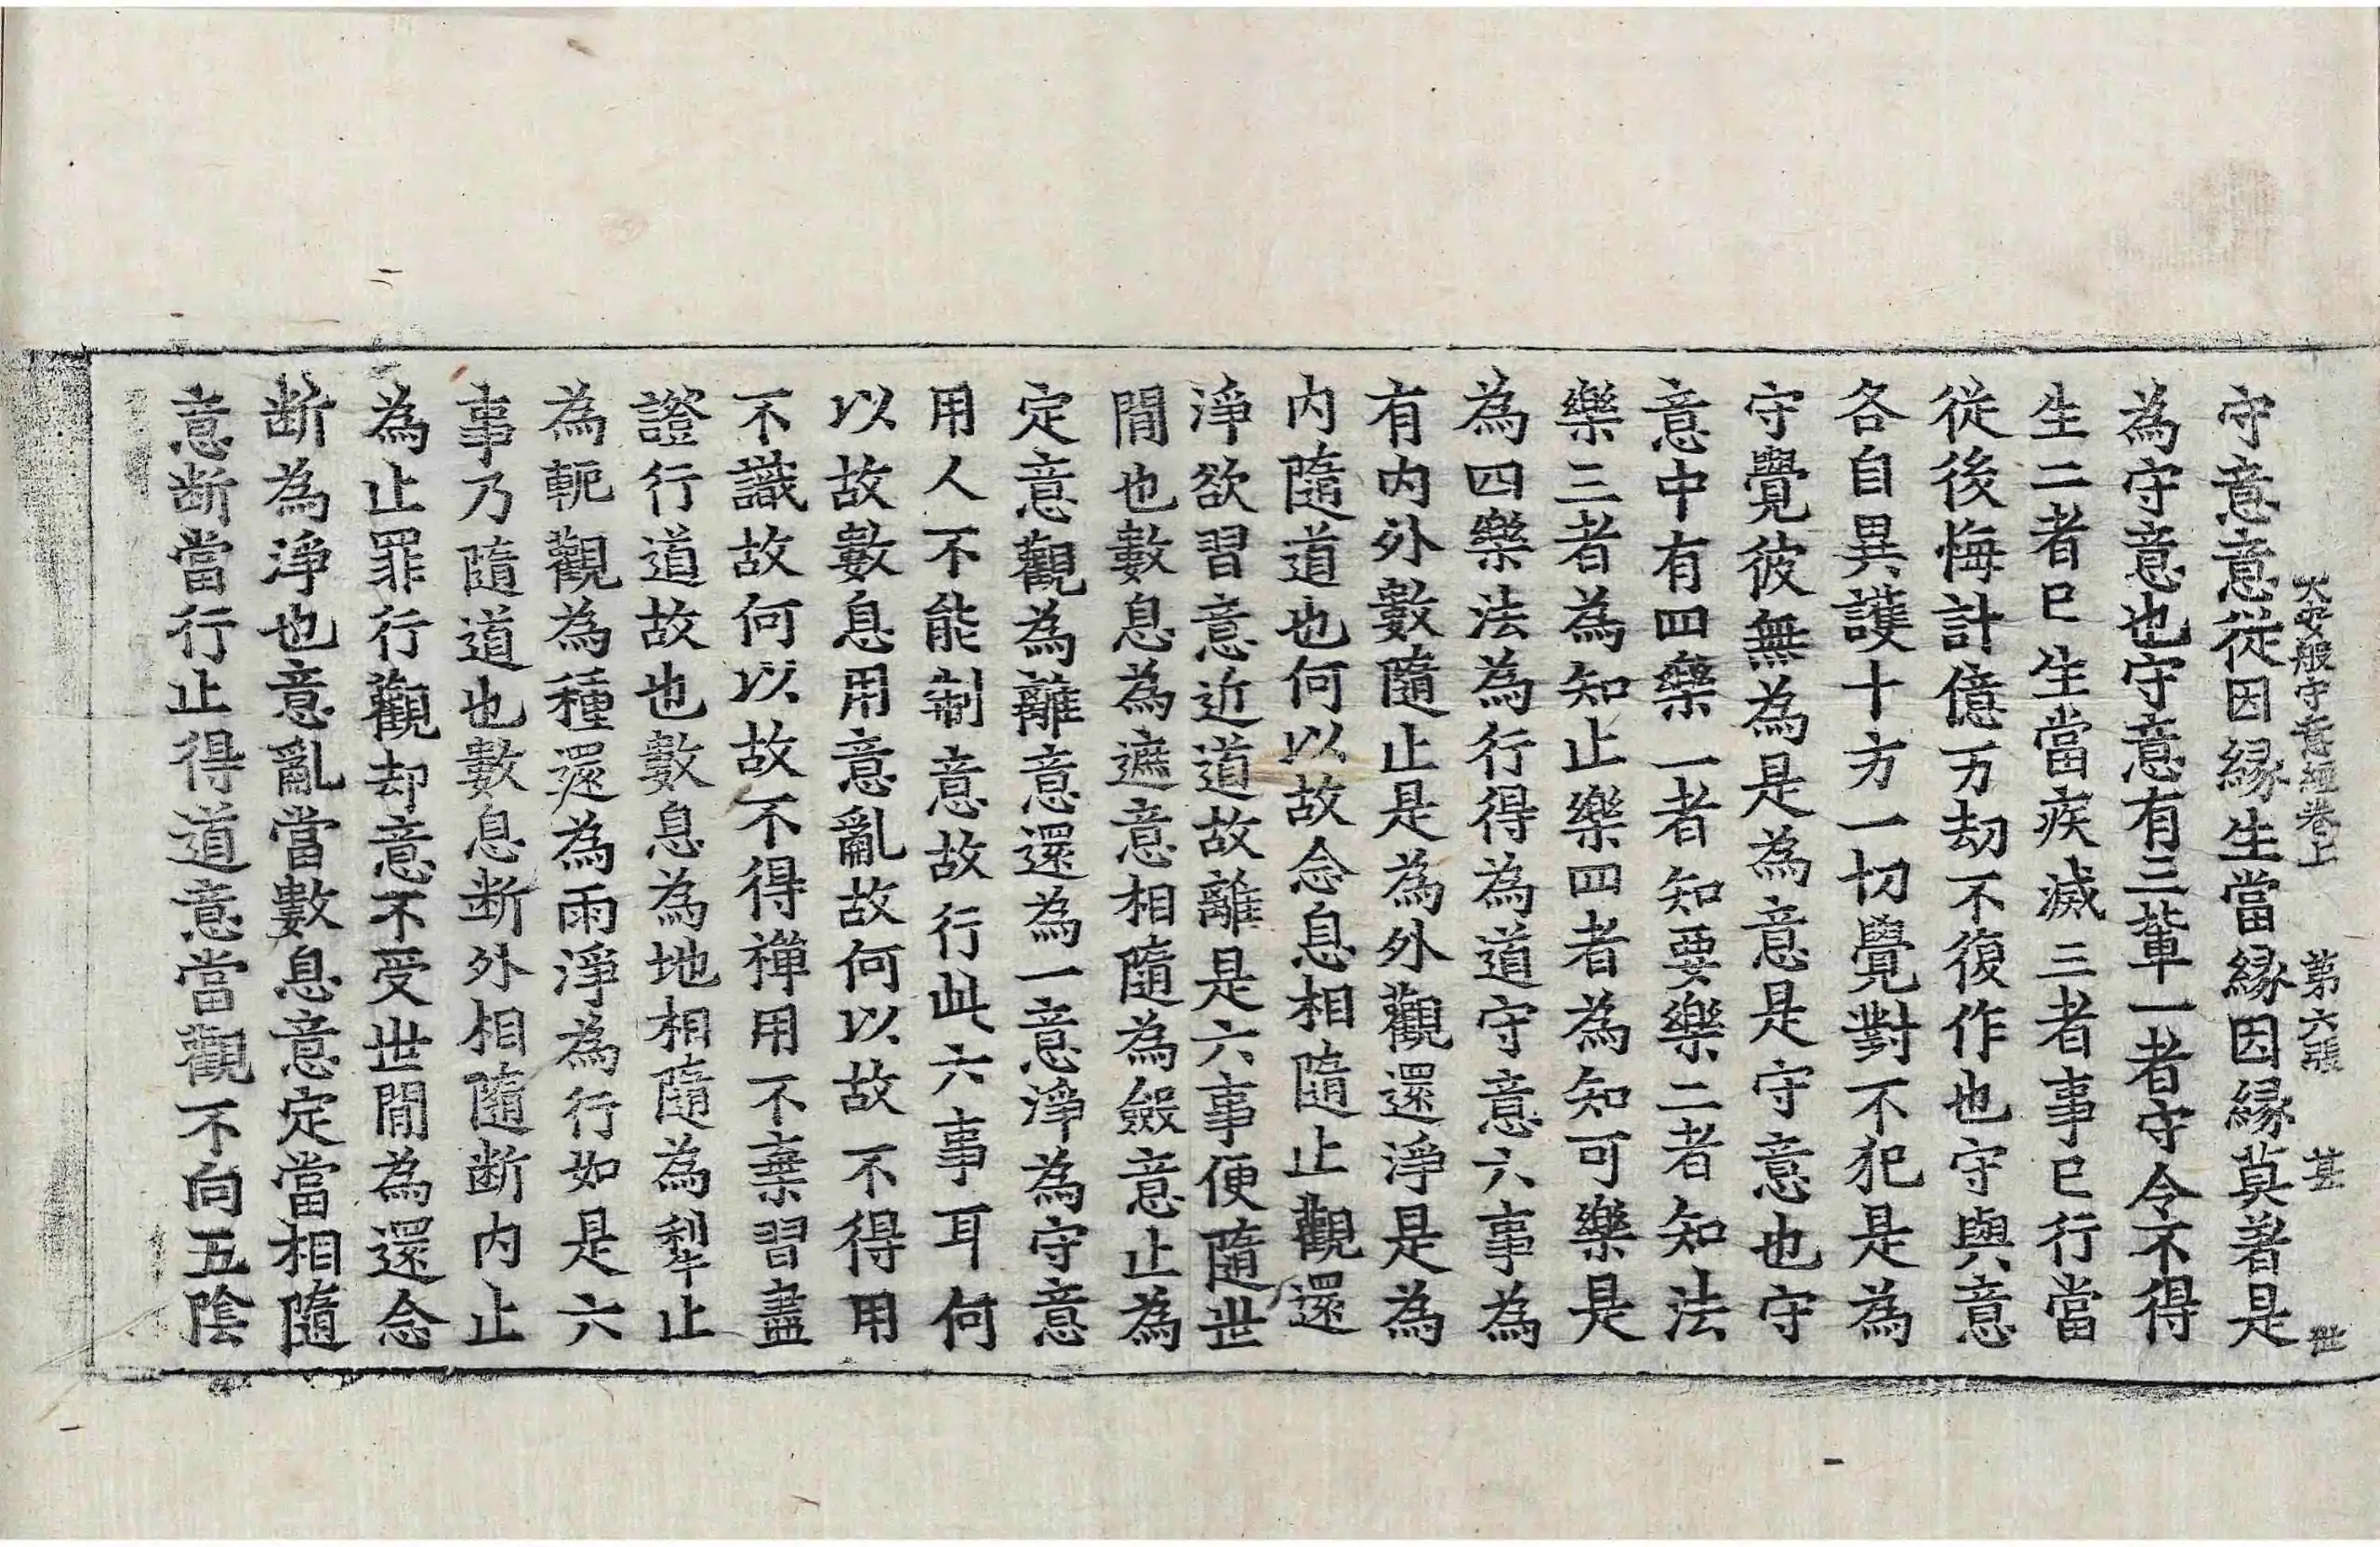 大安般守意經卷上 第六張 甚
守意意從因緣生當緣因緣莫著是
為守意也守意有三輩一者守令不得
生二者已生當疾滅三者事已行當
從後悔計億万劫不復作也守與意
各自異護十方一切覺對不犯是為
守覺彼無為是為意是守意也守
意中有四樂一者知要樂二者知法
樂三者為知止樂四者為知可樂是
為四樂法為行得為道守意六事為
有內外數隨止是為外觀還淨是為
內隨道也何以故念息相隨止觀還
淨欲習意近道故離是六事便隨世
間也數息為遮意相隨為斂意止為
定意觀為離意還為一意淨為守意
用人不能制意故行此六事耳何
以故數息用意亂故何以故不得用
不識故何以故不得禪用不棄習盡
證行道故也數息為地相隨為犁止
為軛觀為種還為雨淨為行如是六
事乃隨道也數息断外相隨断內止
為止罪行觀却意不受世間為還念
断為淨也意亂當數息意定當相隨
意断當行止得道意當觀不向五陰